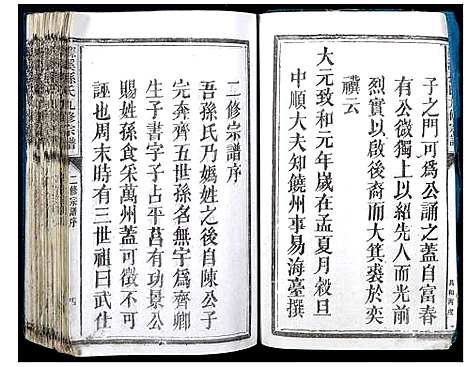 子之門可為公誦之蓋自富春
有公微獨上以紹先人而光前
烈實以啟後裔而大箕裘於奕
禩云
大元致和元年歲在孟夏月穀旦
中順大夫知饒州事易海臺撰
二修宗譜序
吾孫氏乃媯姓之後自陳公子
完奔齊五世孫名無宇為齊卿
生子書字子占平莒有功景公
賜姓孫食采萬州蓋可稽而不
誣也周末時有三世祖曰武仕
孫氏九修宗譜
二修宗譜序